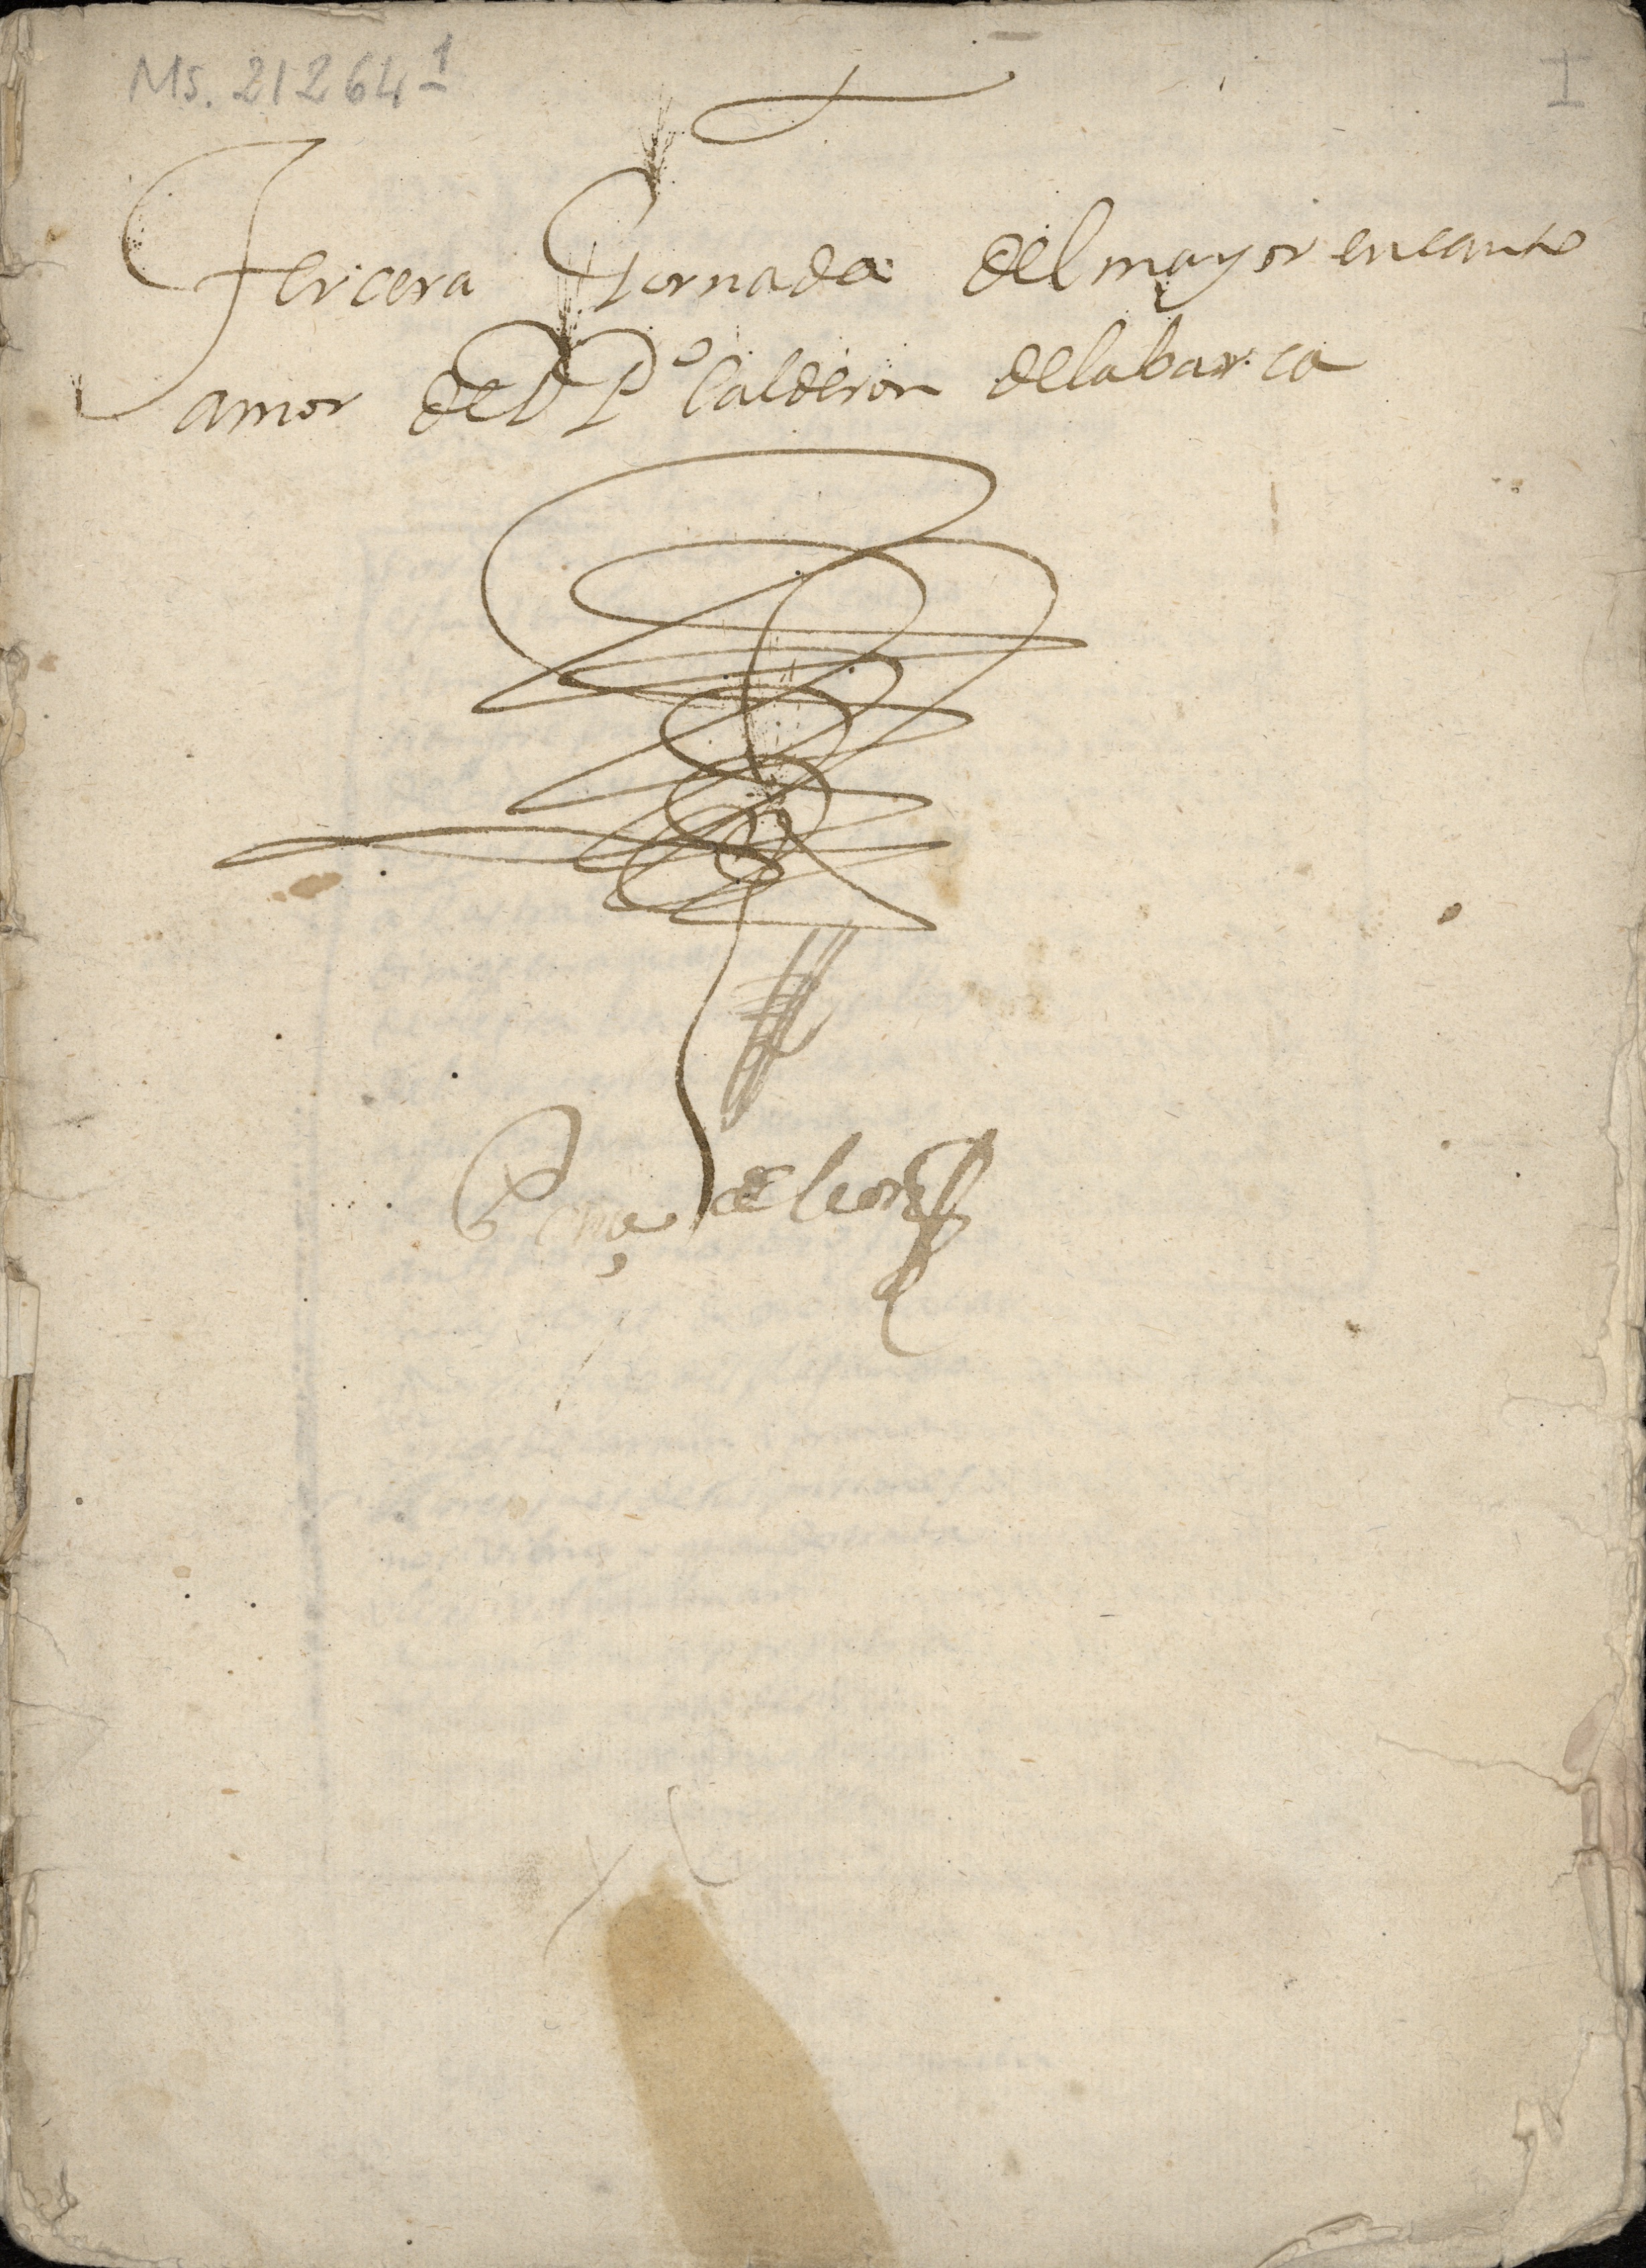 Ms. 21264-1
I
Tercera Jornada del mayor encanto
amor de D P.º Calderon de la barca
de leon